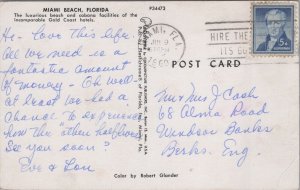 MIAMI BEACH, FLORIDA
P34473
The luxurious beach and cabana facilities of the
incomparable Gold Coast hotels.
Hi - Love this life.
All we need is a
fantastic amount
of money - Oh well
at least we had a
chance to experience
how the "other half lives"
See you soon?
Eve & Lou
MIAMI, FLA.
HIRE THE
ITS GOOD
5¢
POST CARD
Mr & Mrs J Cash
68 Alma Road
Windsor Banks
Berks. Eng
Color by Robert Glander